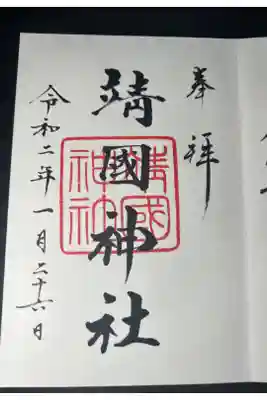 奉拝
靖國神社
靖國
神社
令和二年一月二十六日